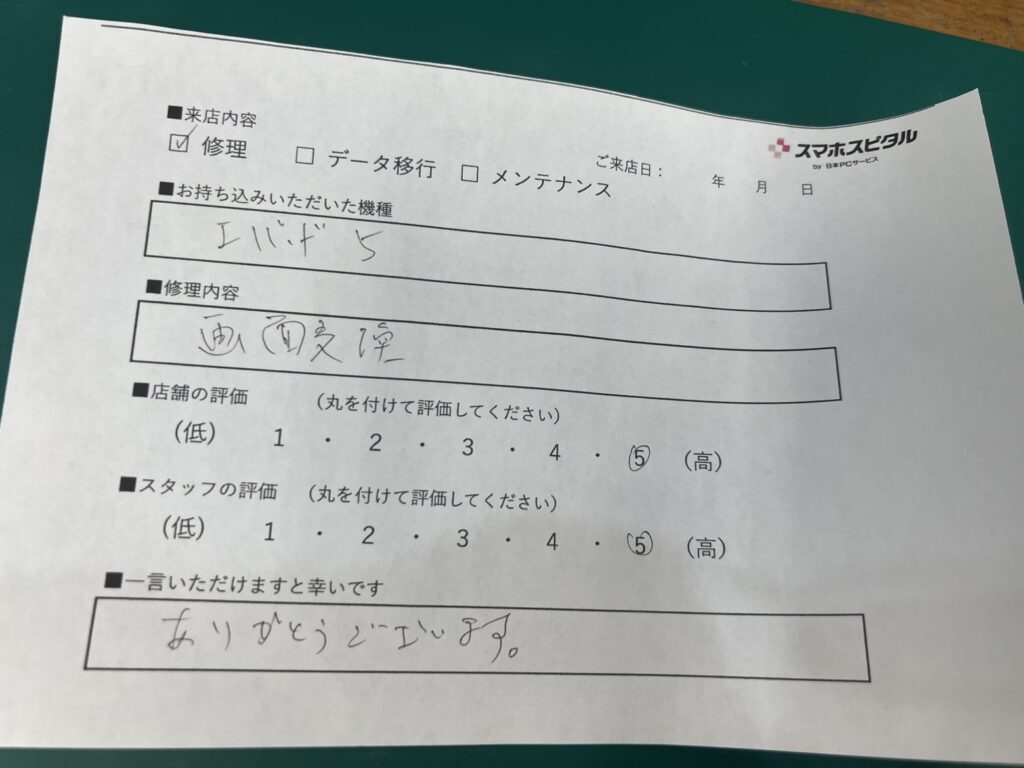 ■来店内容
☑ 修理 □ データ移行 □ メンテナンス
ご来店日： 年 月 日
スマホスピタル
by 日本PCサービス
■お持ち込みいただいた機種
エパード5
■修理内容
画面交換
■店舗の評価 （丸を付けて評価してください）
（低） 1 ・ 2 ・ 3 ・ 4 ・ 5 （高）
■スタッフの評価 （丸を付けて評価してください）
（低） 1 ・ 2 ・ 3 ・ 4 ・ 5 （高）
■一言いただけますと幸いです
ありがとうございます。